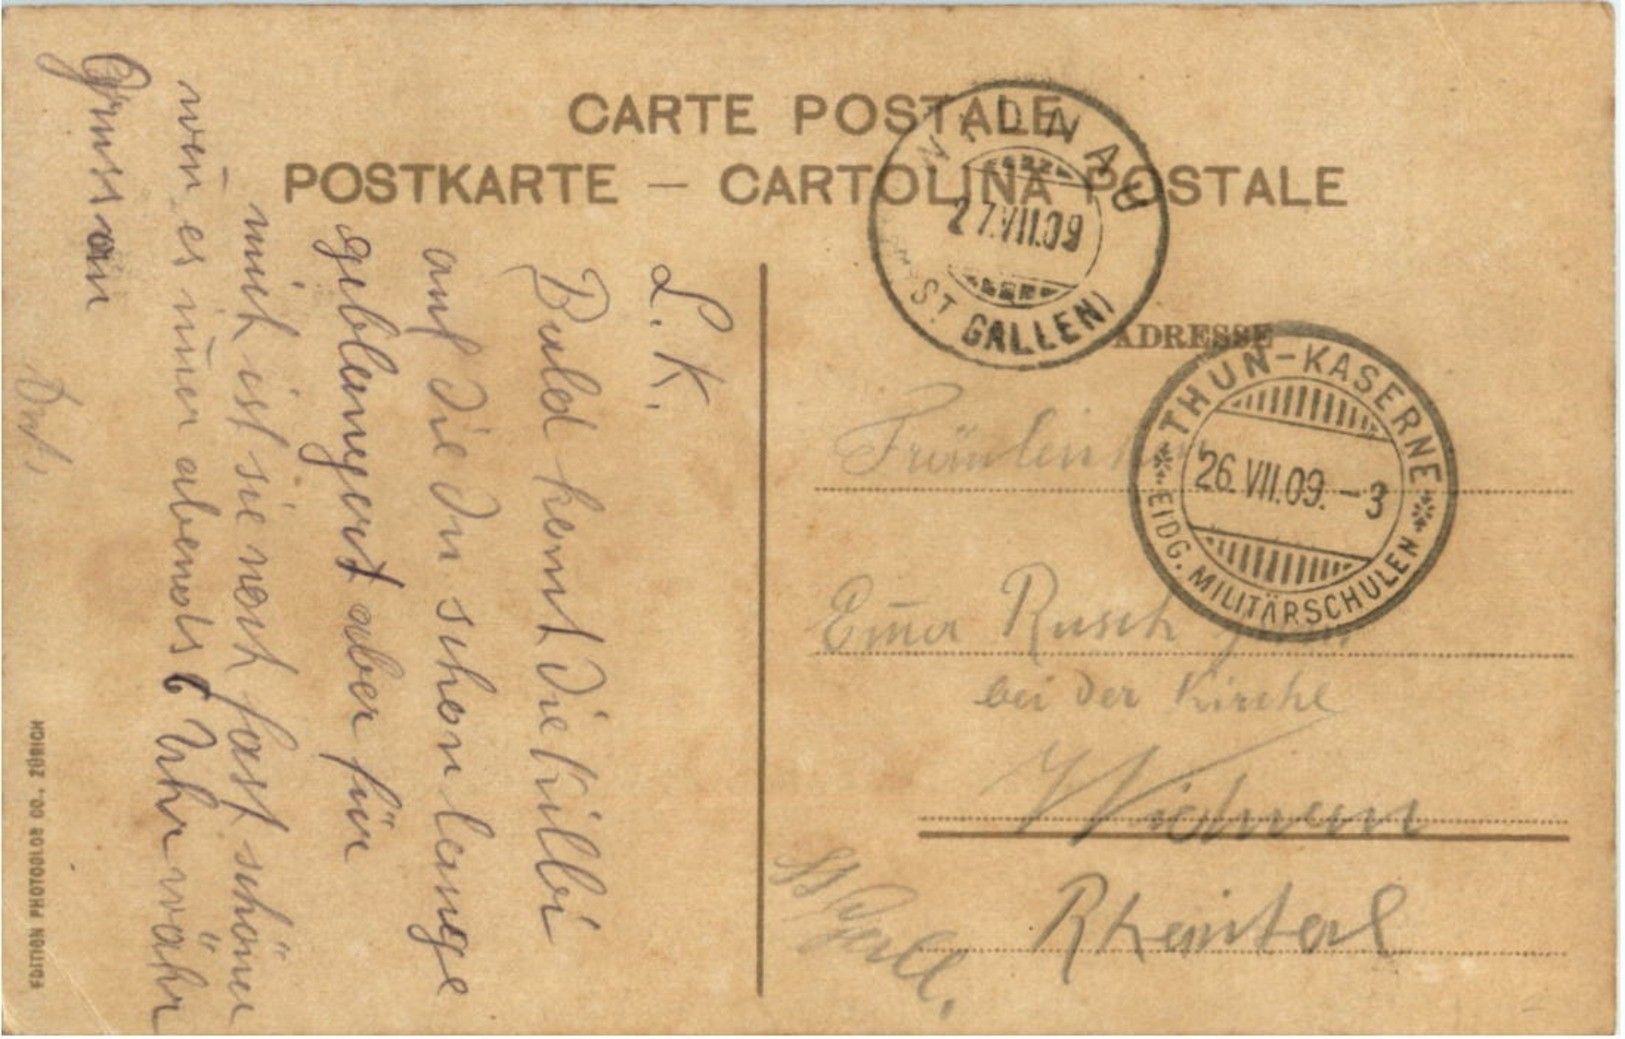 CARTE POSTALE
POSTKARTE — CARTOLINA POSTALE
WIDNAU
27.VII.09
(ST GALLEN)
ADRESSE
THUN-KASERNE
26.VII.09.-3
EIDG. MILITÄRSCHULEN
L. K.
Bald komt die Kilbi
auf die Du schon lange
geblangert aber für
mich ist sie nont fast schöner
wen es imer abends 6 Uhr währ
Gruss von
Fräulein
Em̅a Rusch
bei der Kirche
Widnau
Rheintal
St Gall.
EDITION PHOTOGLOB CO., ZÜRICH